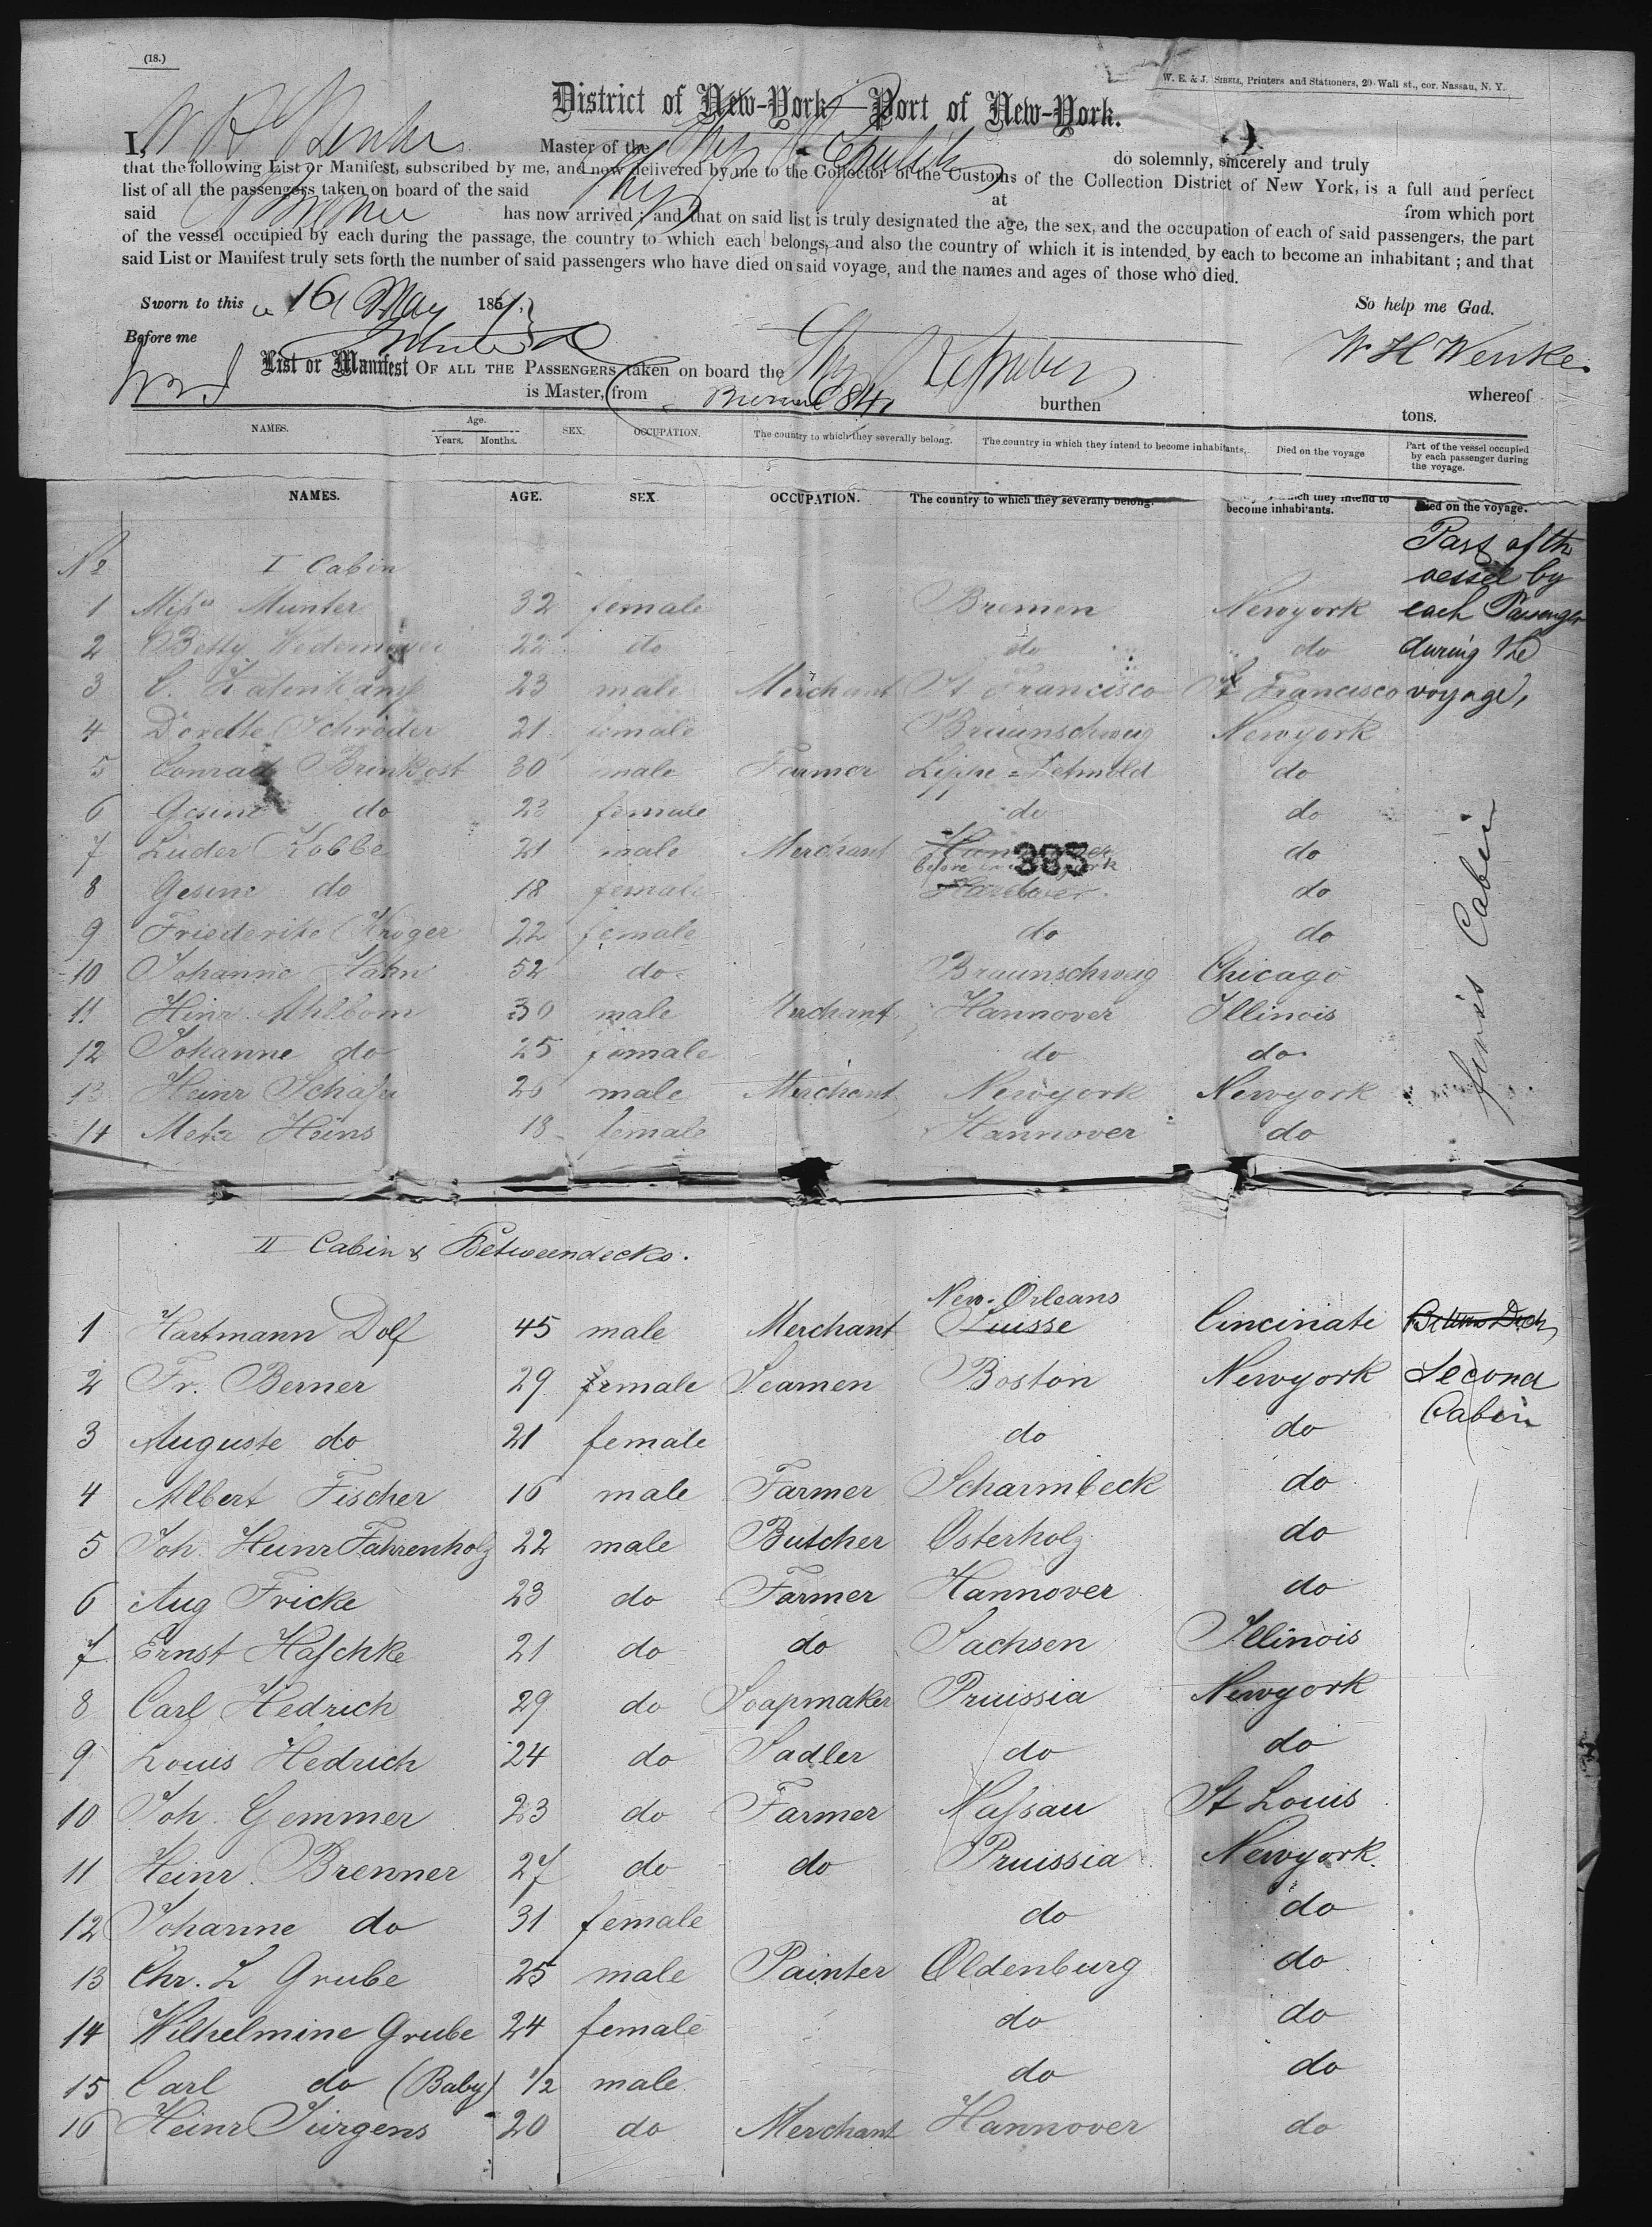 (18.)
W. E. & J. SIBELL, Printers and Stationers, 20 Wall st., cor. Nassau, N. Y.
District of New-York—Port of New-York.
I, Master of the Ship do solemnly, sincerely and truly
that the following List or Manifest, subscribed by me, and now delivered by me to the Collector of the Customs of the Collection District of New York, is a full and perfect
list of all the passengers taken on board of the said Ship at from which port
said has now arrived; and that on said list is truly designated the age, the sex, and the occupation of each of said passengers, the part
of the vessel occupied by each during the passage, the country to which each belongs, and also the country of which it is intended by each to become an inhabitant; and that
said List or Manifest truly sets forth the number of said passengers who have died on said voyage, and the names and ages of those who died.
Sworn to this 16 May 185 So help me God.
Before me W H Wenke
List or Manifest OF ALL THE PASSENGERS taken on board the Ship whereof
is Master, from burthen tons.
NAMES. Age. Years. Months. SEX. OCCUPATION. The country to which they severally belong. The country in which they intend to become inhabitants. Died on the voyage Part of the vessel occupied by each passenger during the voyage.
NAMES. AGE. SEX OCCUPATION. The country to which they severally belong. which they intend to become inhabitants. Died on the voyage.
Part of the vessel by each Passenger during the voyage,
No I Cabin
1 Munter 32 female Bremen Newyork
2 Betty Wedemeyer 22 do do do
3 C. Katenkamp 23 male Merchant St Francisco St Francisco
4 Dorette Schröder 21 female Braunschweig Newyork
5 Conrad Brinkost 30 male Farmer Lippe=Detmold do
6 Gesine do 23 female do do
7 Lüder Kobbe 21 male Merchant Hannover 383 do
8 Gesine do 18 female Hannover do
9 Friederike Kröger 22 female do do
10 Johanne Hahn 52 do Braunschweig Chicago
11 Hinr. Ahlborn 30 male Merchant Hannover Illinois
12 Johanne do 25 female do do
13 Heinr Schäfer 26 male Merchant Newyork Newyork
14 Meta Heins 18 female Hannover do
Cabin
II Cabin & Betweendecks.
New-Orleans
1 Hartmann Dolf 45 male Merchant Suisse Cincinati
2 Fr. Berner 29 male Seamen Boston Newyork Second
3 Auguste do 21 female do do Cabin
4 Albert Fischer 16 male Farmer Scharmbeck do
5 Joh. Heinr Fahrenholz 22 male Butcher Osterholz do
6 Aug Fricke 23 do Farmer Hannover do
7 Ernst Haschke 21 do do Sachsen Illinois
8 Carl Hedrich 29 do Soapmaker Pruissia Newyork
9 Louis Hedrich 24 do Sadler do do
10 Joh. Gemmer 23 do Farmer Nassau St Louis
11 Heinr. Brenner 27 do do Pruissia Newyork.
12 Johanne do 31 female do do
13 Chr. L Grube 25 male Painter Oldenburg do
14 Wilhelmine Grube 24 female do do
15 Carl do (Baby) 1/2 male do do
16 Heinr Jürgens 20 do Merchant Hannover do